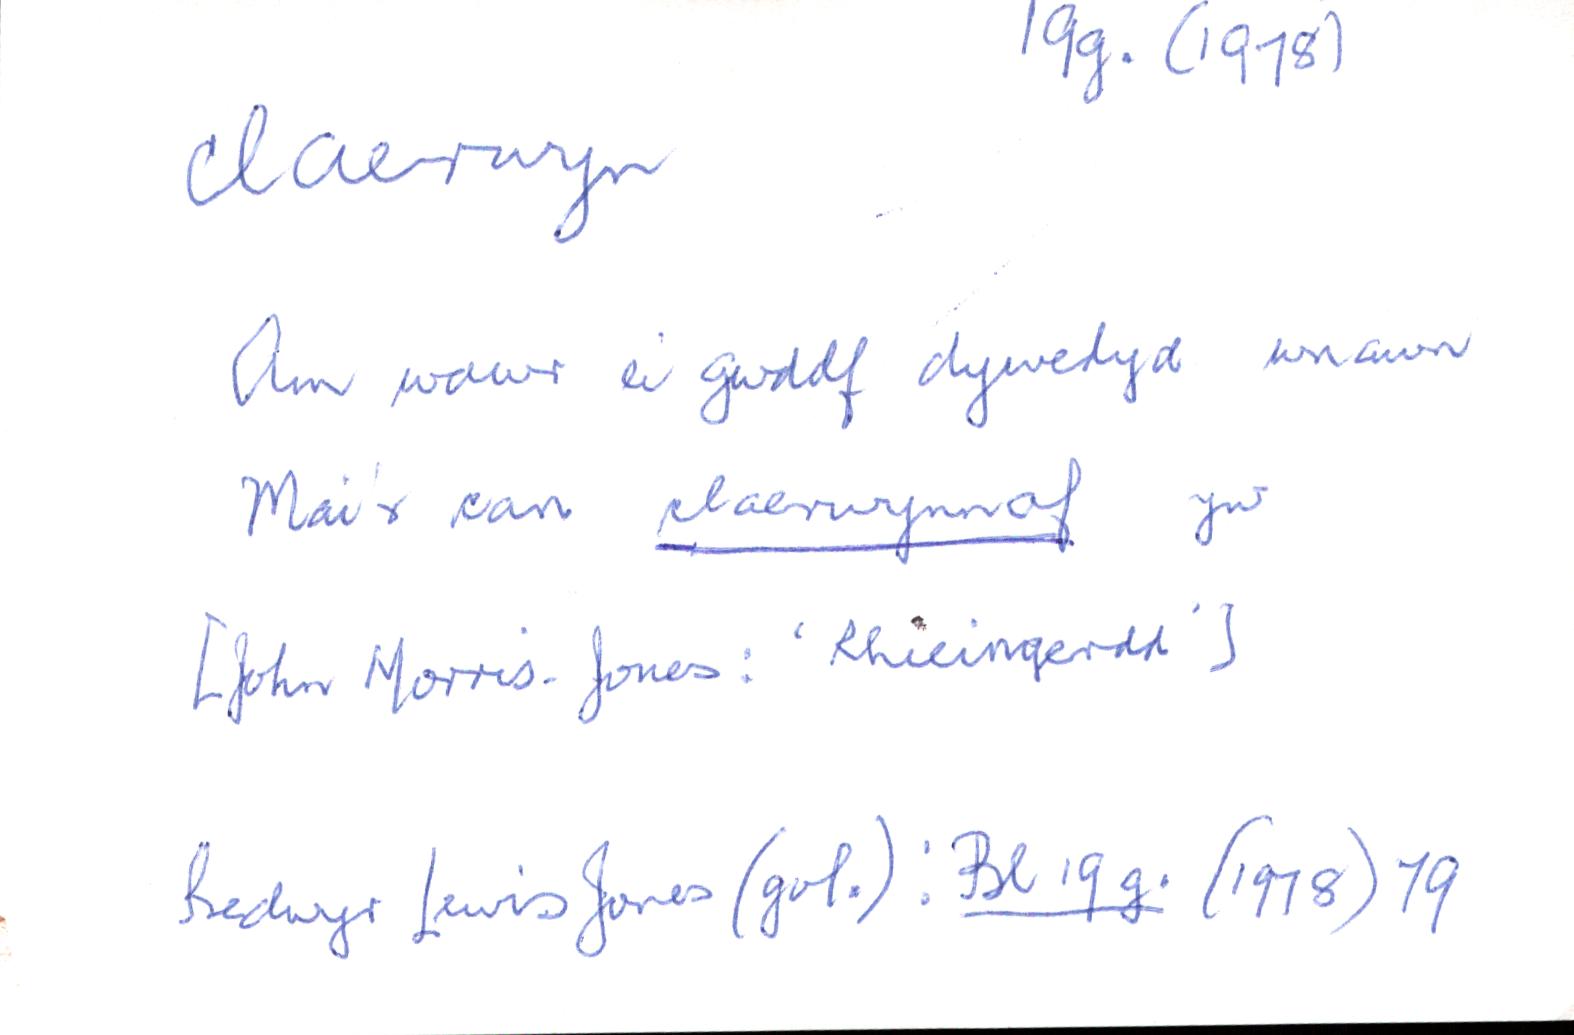 19g. (1978)
claerwyn
Am wawr ei gwddf dywedyd wnawn
Mai'r can claerwynnaf yw
[John Morris-Jones: 'Rhieingerdd']
Bedwyr Lewis Jones (gol.): Bl 19g. (1978) 79